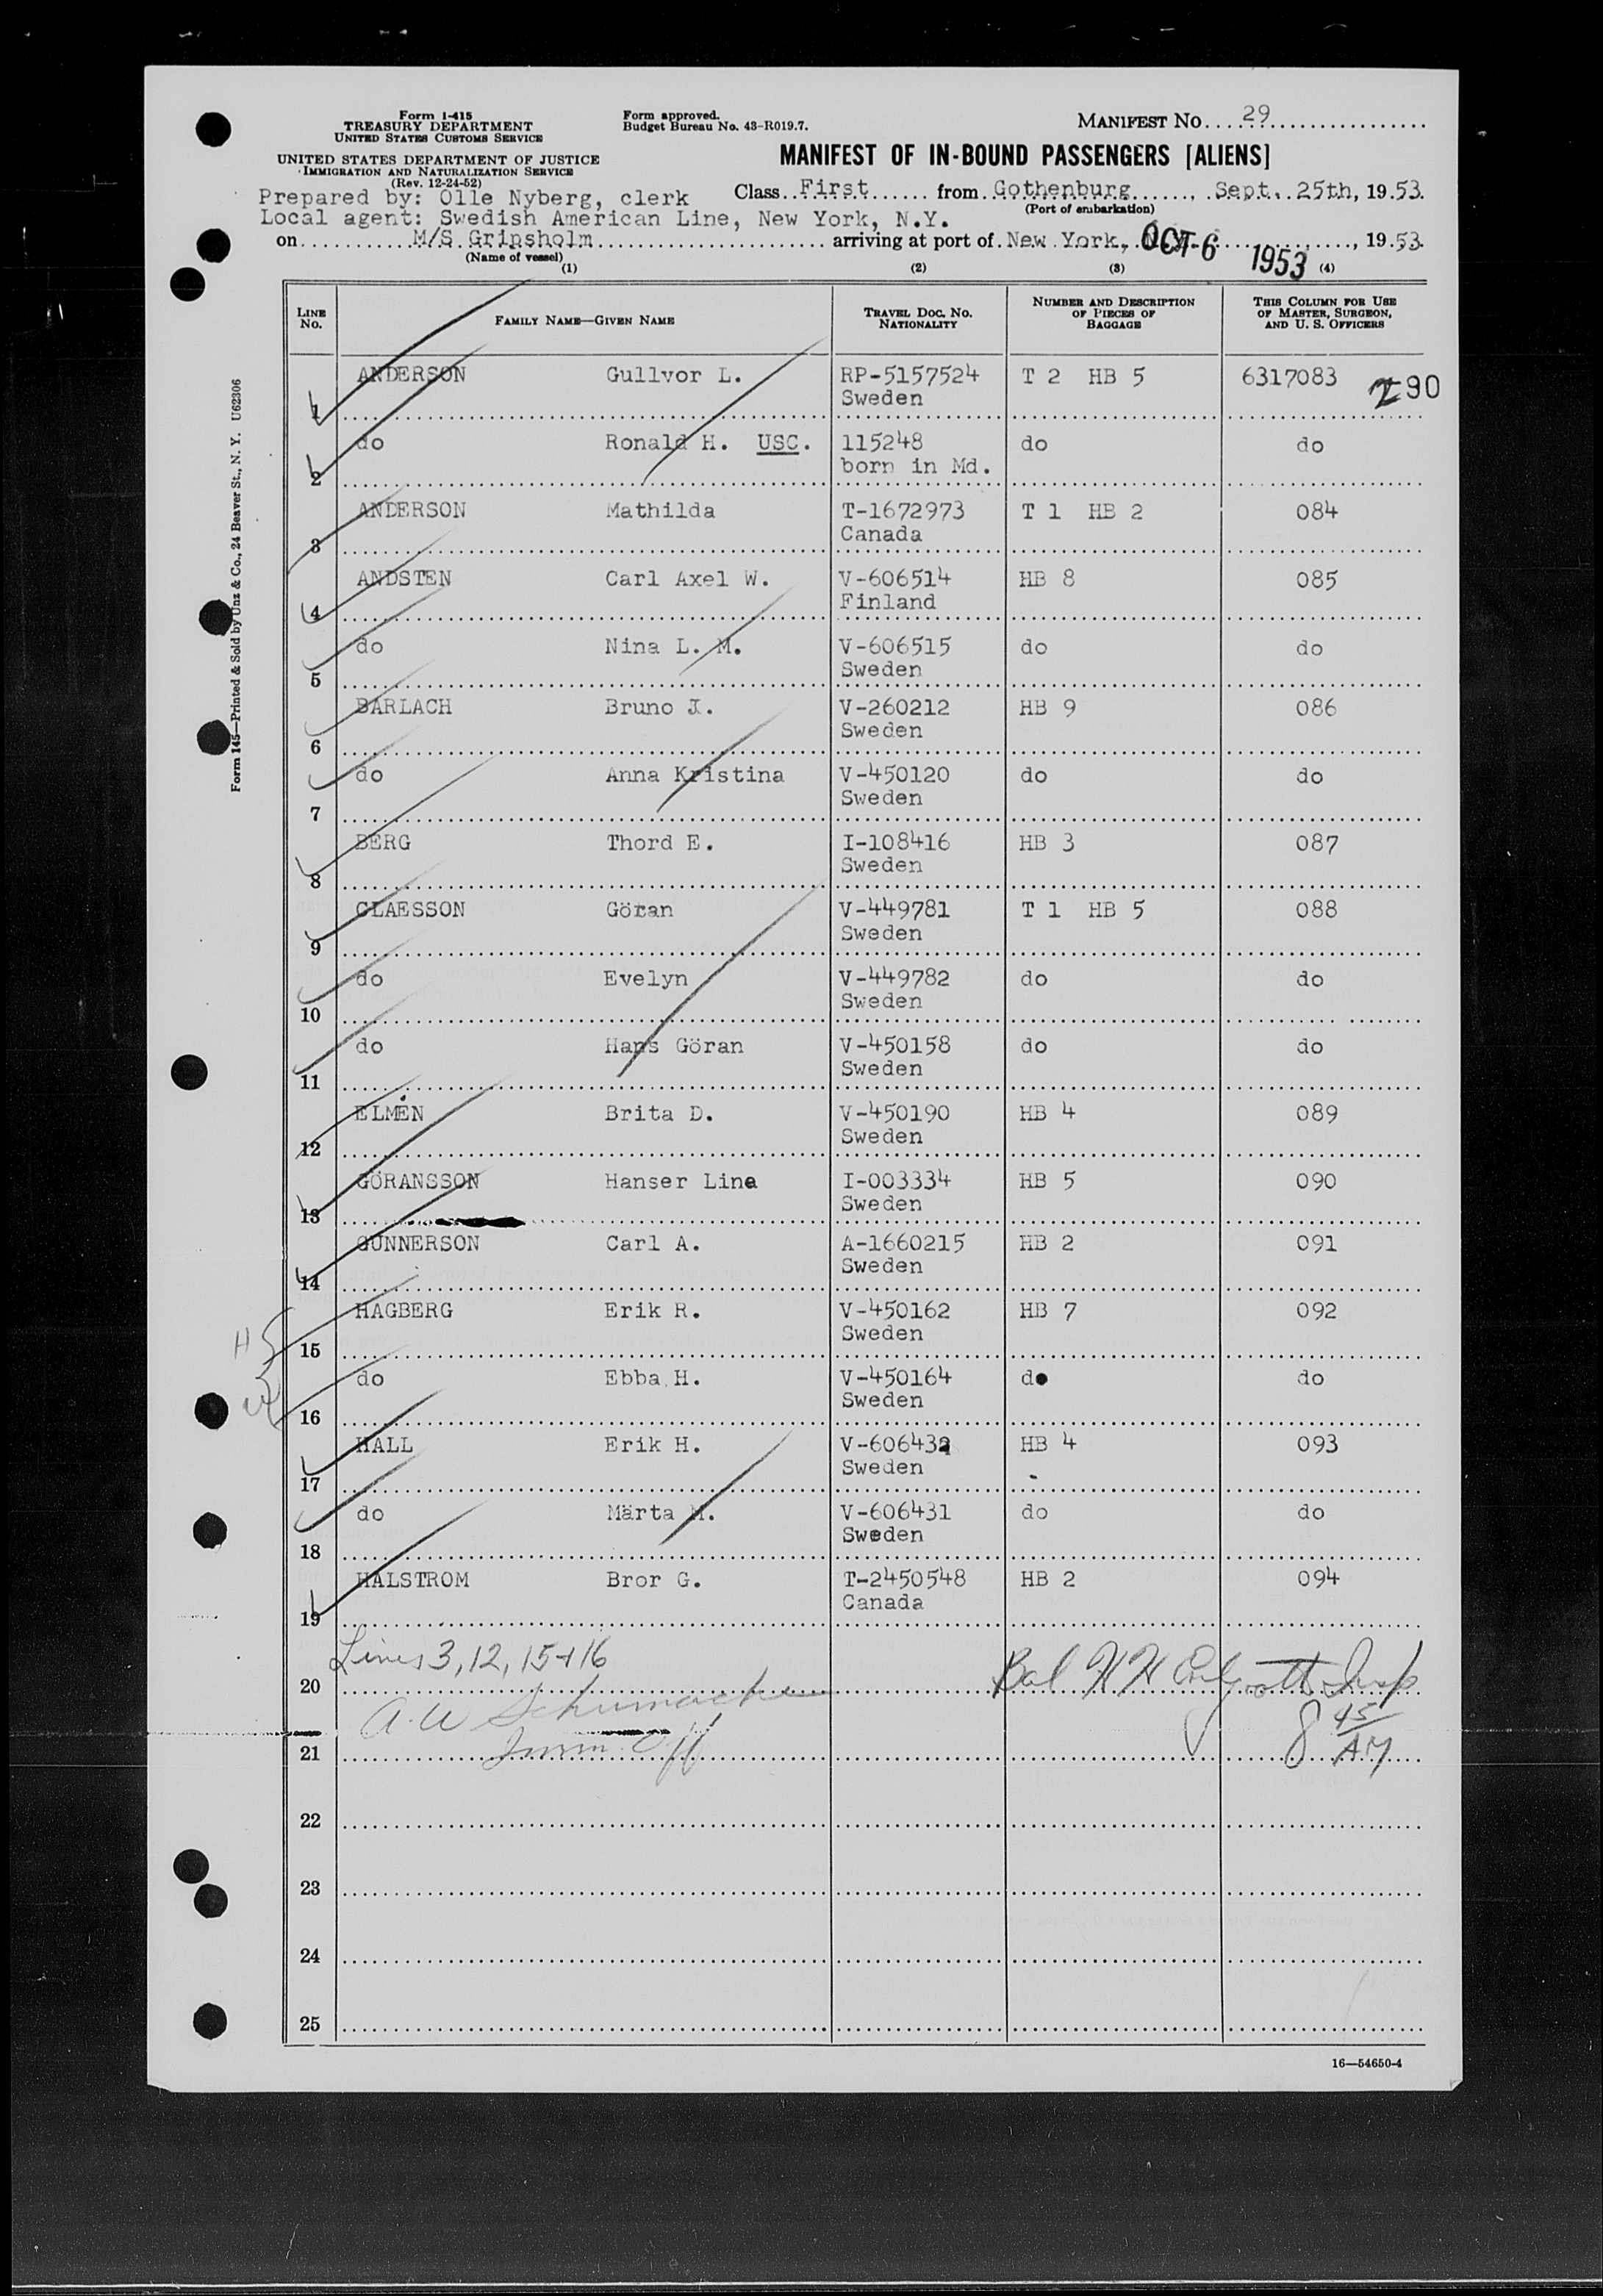 Form I-415
TREASURY DEPARTMENT
UNITED STATES CUSTOMS SERVICE
UNITED STATES DEPARTMENT OF JUSTICE
IMMIGRATION AND NATURALIZATION SERVICE
(Rev. 12-24-52)
Form approved.
Budget Bureau No. 43-R019.7.
MANIFEST No. 29
MANIFEST OF IN-BOUND PASSENGERS [ALIENS]
Prepared by: Olle Nyberg, clerk
Class First from Gothenburg, Sept. 25th, 1953.
(Port of embarkation)
Local agent: Swedish American Line, New York, N.Y.
on M/S Gripsholm arriving at port of New York, N.Y. OCT 6 1953, 1953.
(Name of vessel)
(1) (2) (3) (4)
LINE No. FAMILY NAME—GIVEN NAME TRAVEL DOC. NO. NATIONALITY NUMBER AND DESCRIPTION OF PIECES OF BAGGAGE THIS COLUMN FOR USE OF MASTER, SURGEON, AND U. S. OFFICERS
1 ANDERSON Gullvor L. RP-5157524 T 2 HB 5 6317083 290
Sweden
2 do Ronald H. USC. 115248 do do
born in Md.
3 ANDERSON Mathilda T-1672973 T 1 HB 2 084
Canada
4 ANDSTEN Carl Axel W. V-606514 HB 8 085
Finland
5 do Nina L. M. V-606515 do do
Sweden
6 BARLACH Bruno J. V-260212 HB 9 086
Sweden
7 do Anna Kristina V-450120 do do
Sweden
8 BERG Thord E. I-108416 HB 3 087
Sweden
9 CLAESSON Göran V-449781 T 1 HB 5 088
Sweden
10 do Evelyn V-449782 do do
Sweden
11 do Hans Göran V-450158 do do
Sweden
12 ELMÉN Brita D. V-450190 HB 4 089
Sweden
13 GÖRANSSON Hanser Lina I-003334 HB 5 090
Sweden
14 GUNNERSON Carl A. A-1660215 HB 2 091
Sweden
15 HAGBERG Erik R. V-450162 HB 7 092
Sweden
16 do Ebba H. V-450164 do do
Sweden
17 HALL Erik H. V-606432 HB 4 093
Sweden
18 do Märta M. V-606431 do do
Sweden
19 HALSTROM Bror G. T-2450548 HB 2 094
Canada
Lines 3, 12, 15+16
20 Bal Insp
A. W Schumacher 8 45/AM
21 Imm. Off
22
23
24
25
16—54650-4
Form 145—Printed & Sold by Unz & Co., 24 Beaver St., N. Y. U62306